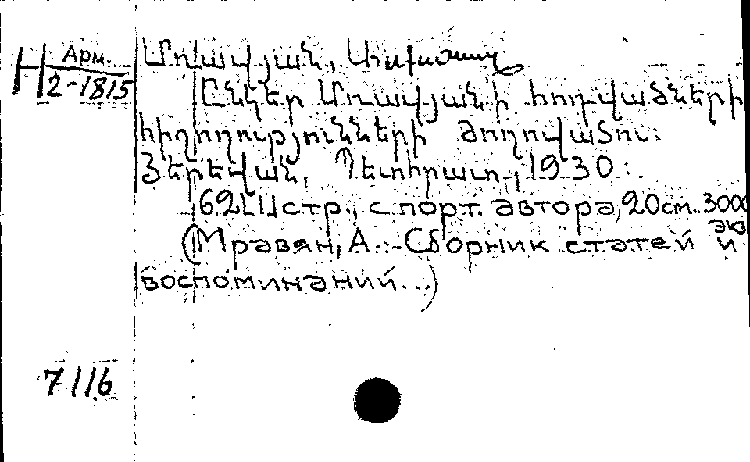 Арм.
Н 2-1815
Մռավյան, Ասքանազ
Ընկեր Մռավյանի հոդվածների
հիշողությունների ժողովածու.
Յերեվան, Պետհրատ, 1930.
62 стр., с порт. автора, 20см. 3000 экз
(Мравян, А. - Сборник статей и
воспоминаний...)
7116